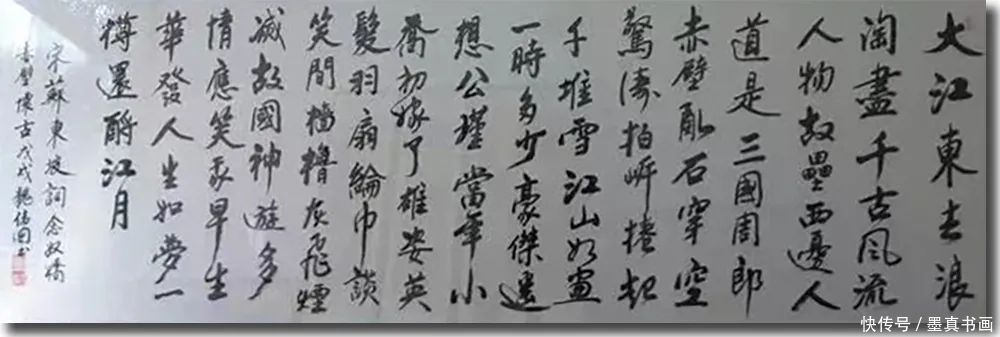 大江東去浪
淘盡千古風流
人物故壘西邊人
道是三國周郎
赤壁亂石穿空
驚濤拍岸捲起
千堆雪江山如畫
一時多少豪傑遥
想公瑾當年小
喬初嫁了雄姿英
髮羽扇綸巾談
笑間檣櫓灰飛煙
滅故國神遊多
情應笑我早生
華發人生如夢一
樽還酹江月
宋蘇東坡詞念奴嬌
赤壁懷古戊戌魏书
快传号/墨真书画